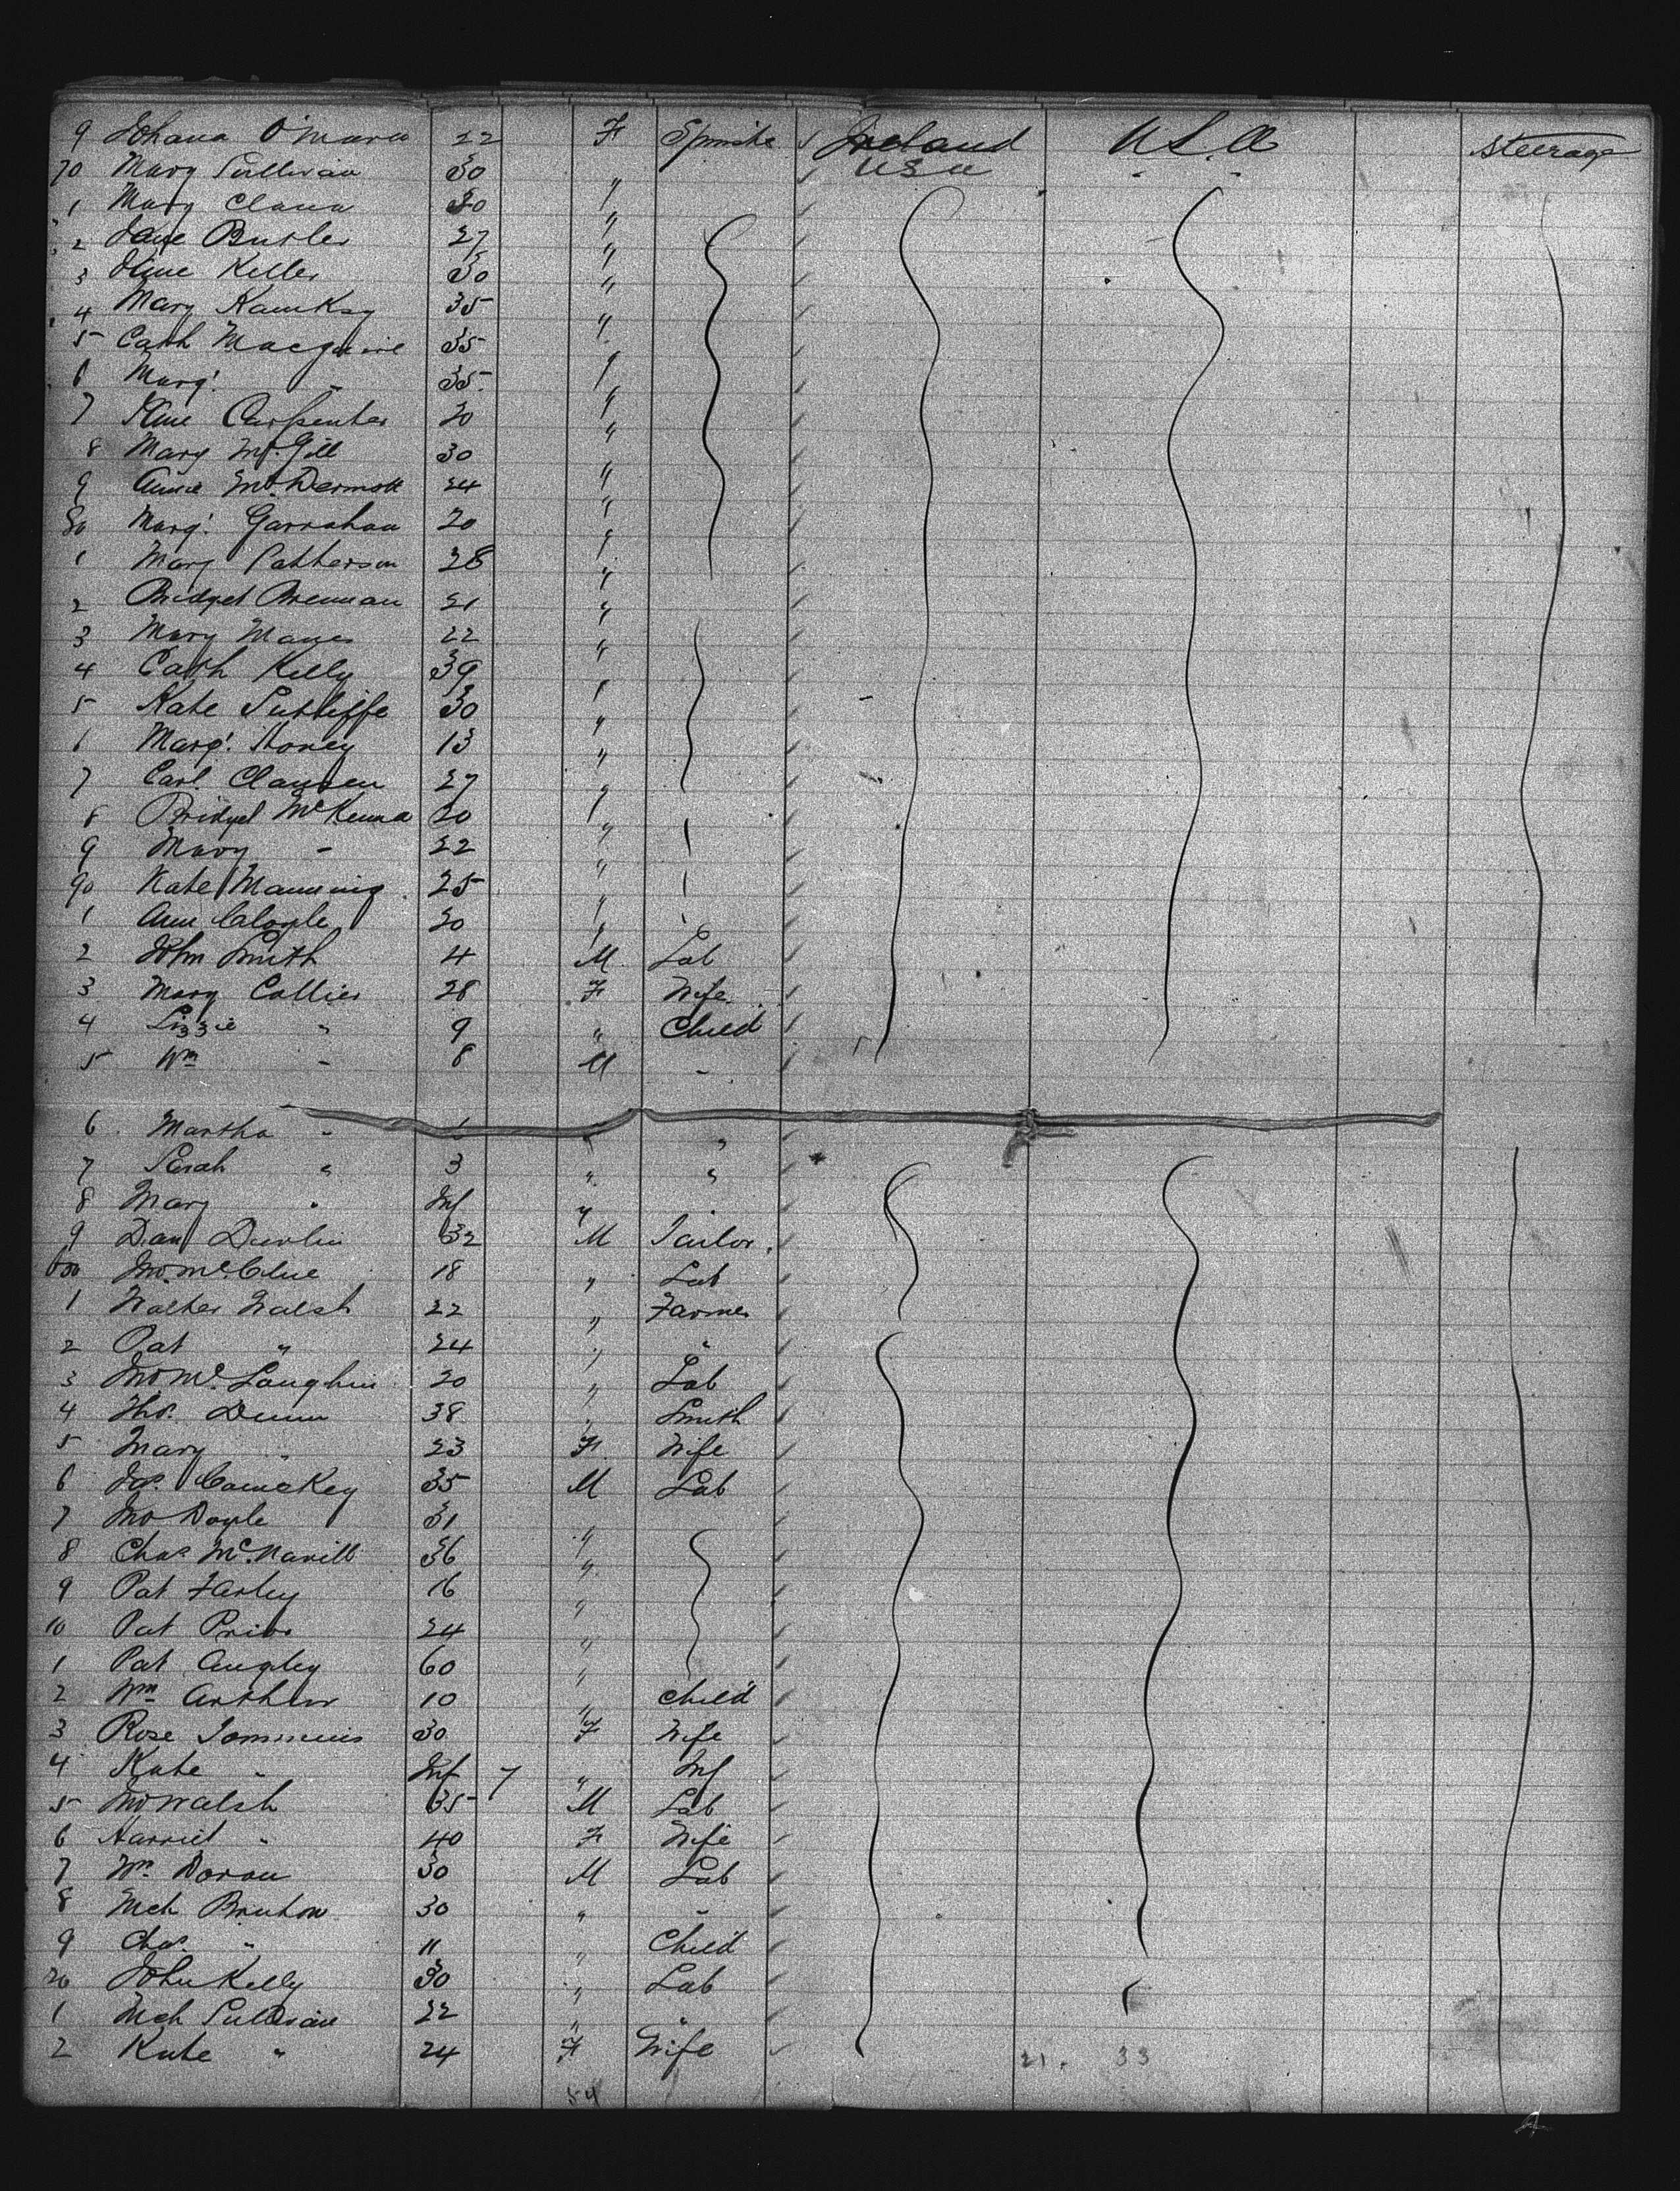 9 Johana O'Mara 22 F Spinster Ireland U.S.A Steerage
70 Mary Sullivan 30 " U S A
1 Mary 30 "
2 Jane Butler 27 "
3 Jane Keller 30 "
4 Mary 35 "
5 Cath Macguire 35 "
6 Margt. - 35 "
7 Jane Carpenter 20 "
8 Mary McGill 30 "
9 Annie McDermott 24 "
80 Margt. Garrahan 20 "
1 Mary Patterson 28 "
2 Bridget Brennan 21 "
3 Mary 22 "
4 Cath Kelly 39 "
5 Kate Sutcliffe 30 "
6 Margt. 13 "
7 Carl. Clausen 27 "
8 Bridget McKenna 20 "
9 Mary - 22 "
90 Kate Manning 25 "
1 Ann 20 "
2 John Smith 4 M Lab
3 Mary Collier 28 F Wife
4 Lizzie " 9 " Child
5 Wm - 8 M -
6 Martha - " "
7 Sarah " 3 " "
8 Mary " Inf "
9 Dan 32 M Tailor
600 Jno. McClue 18 " Lab
1 Walter Walsh 22 " Farmer
2 Pat " 24 " "
3 Jno McLoughlin 20 " Lab
4 Tho. Dunn 38 " Smith
5 Mary " 23 F Wife
6 Jas. 35 M Lab
7 Jno Doyle 31 "
8 Chas 36 "
9 Pat Farley 16 "
10 Pat Prior 24 "
1 Pat Angley 60 "
2 Wm Arthur 10 " Child
3 Rose 30 F Wife
4 Kate " Inf 7 " Inf
5 Jno Walsh 35 M Lab
6 Harriet " 40 F Wife
7 Wm Doran 30 M Lab
8 Mch 30 " -
9 Chas. " 11 " Child
20 John Kelly 30 " Lab
1 Mch Sullivan 22 " "
2 Kate " 24 F Wife 21. 33
54